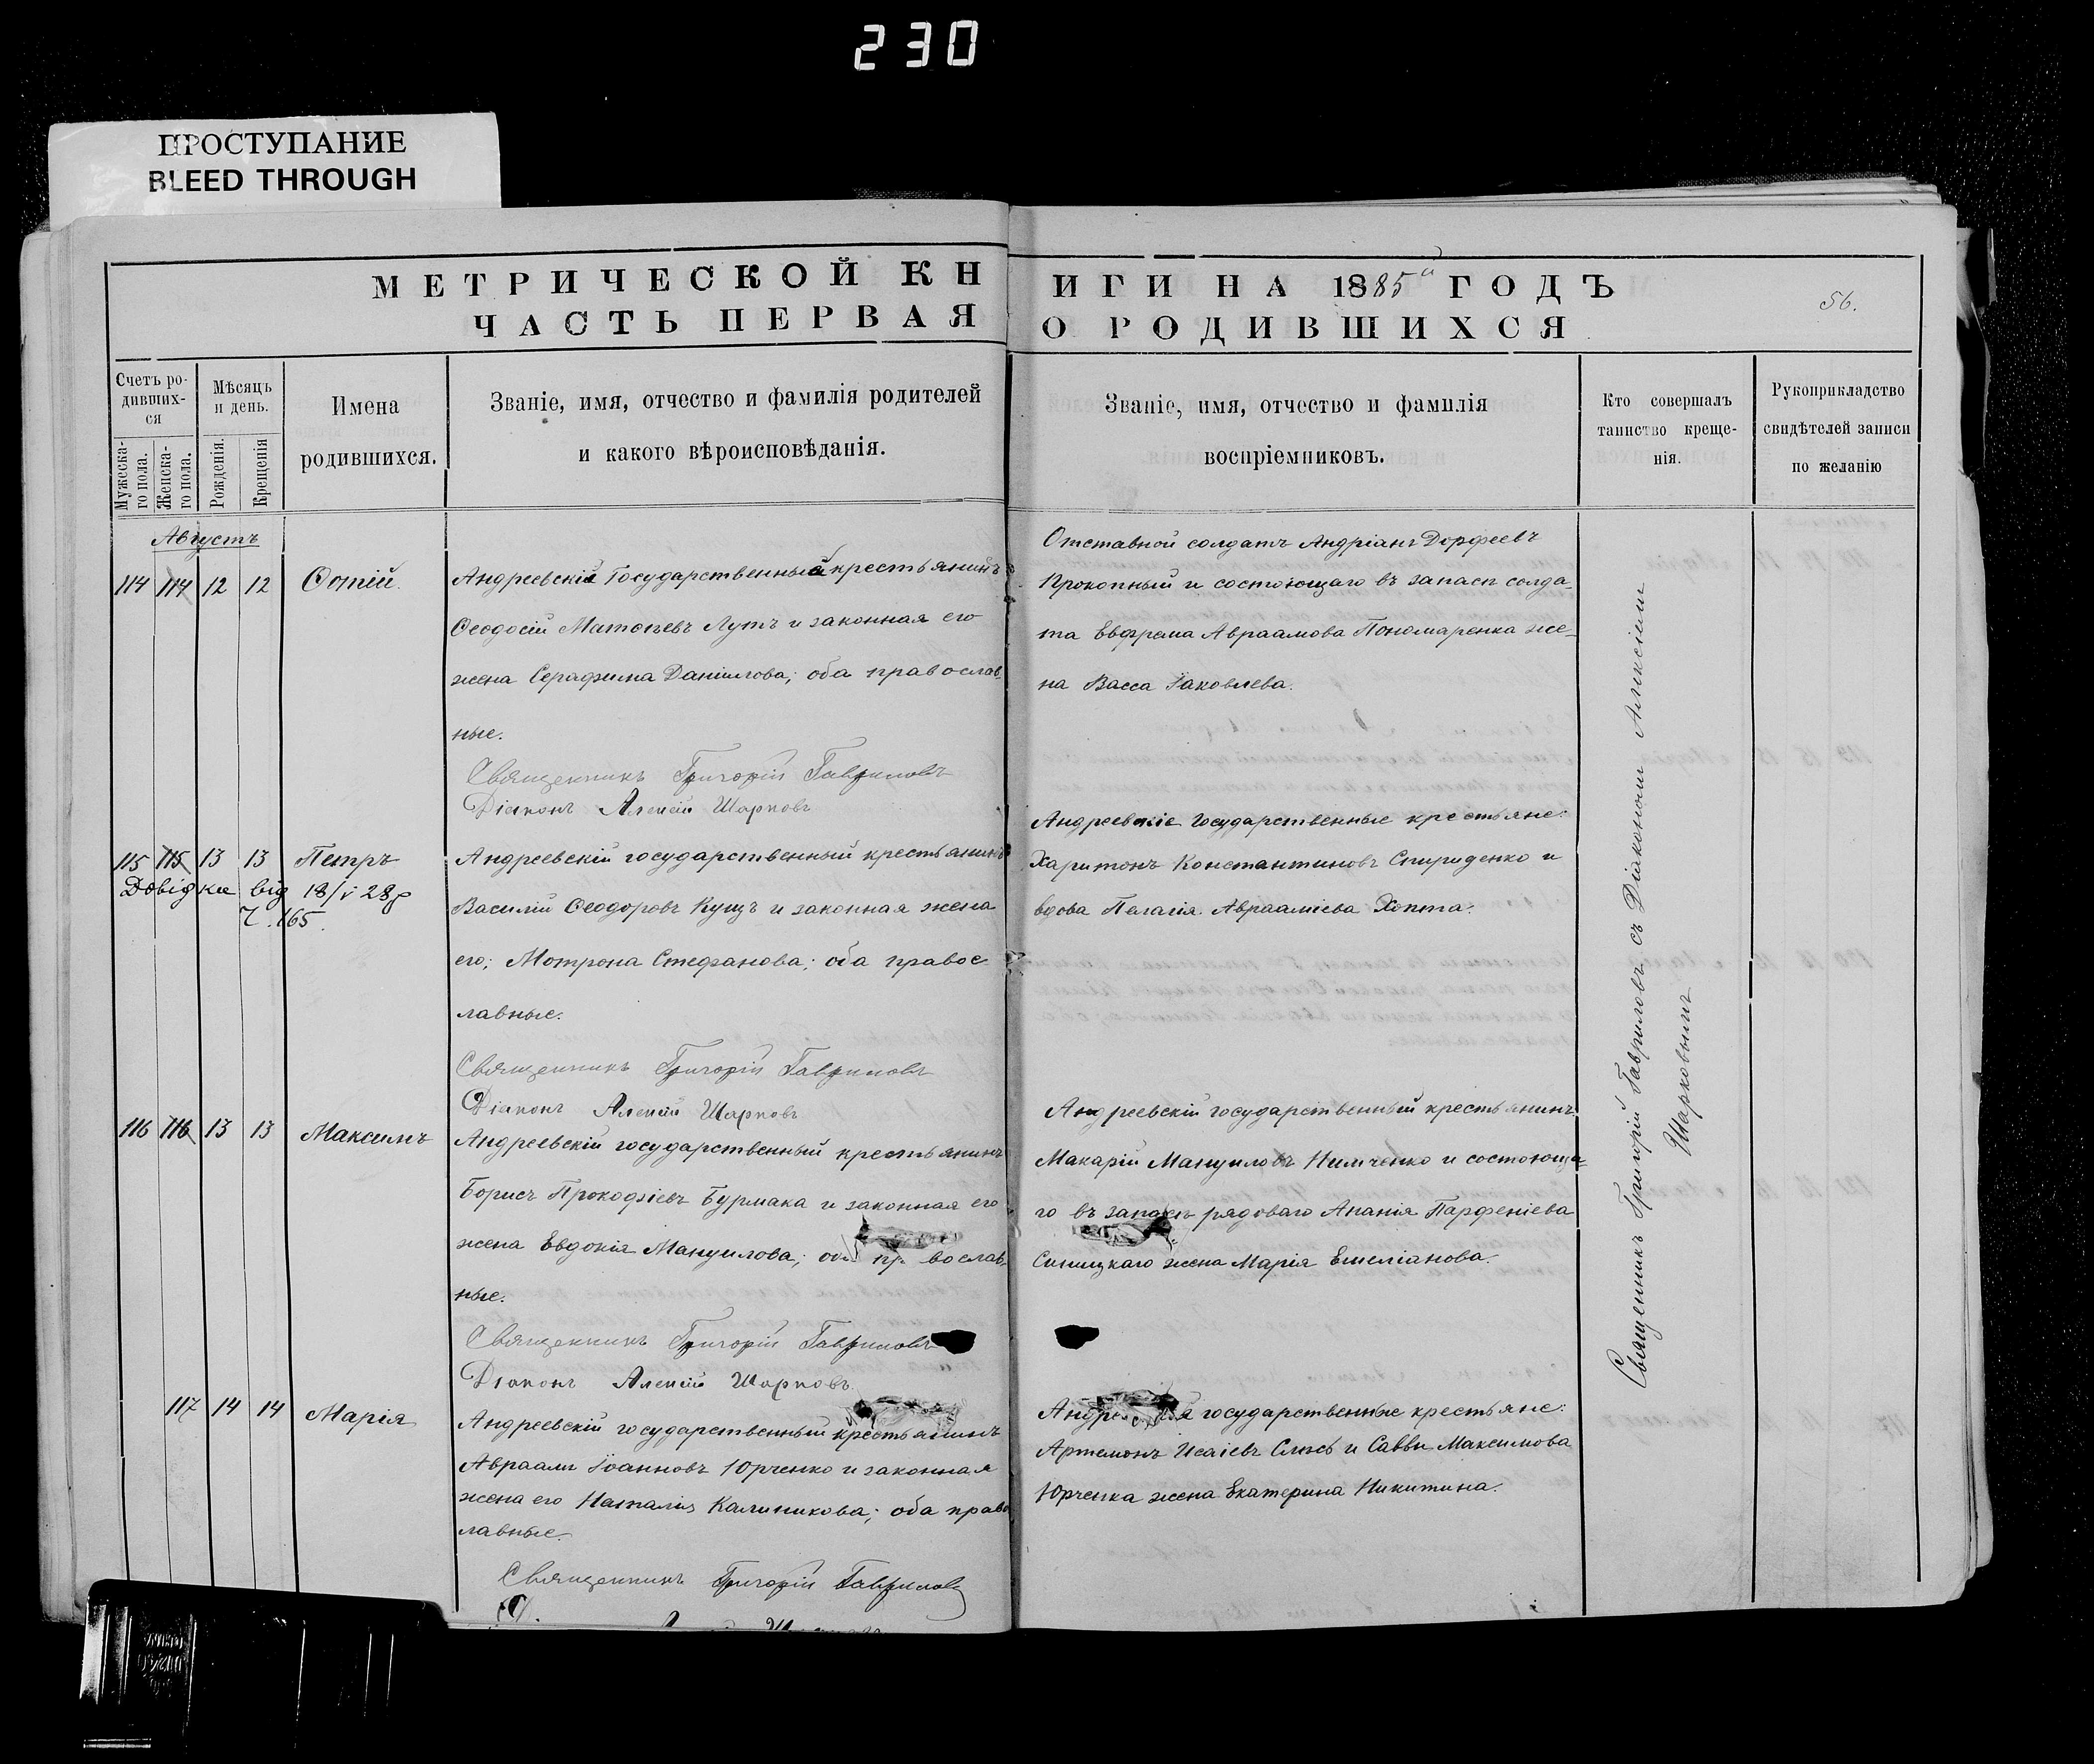 230
ПРОСТУПАНИЕ
BLEED THROUGH
МЕТРИЧЕСКОЙ КНИГИ НА 1885й ГОДЪ
ЧАСТЬ ПЕРВАЯ О РОДИВШИХСЯ
56.
Счетъ ро-
дивших-
ся
Мужеска-
го пола.
Женска-
го пола.
Мѣсяцъ
и день.
Рожденія.
Крещенія
Имена
родившихся.
Званіе, имя, отчество и фамилія родителей
и какого вѣроисповѣданія.
Званіе, имя, отчество и фамилія
воспріемниковъ.
Кто совершалъ
таинство креще-
нія.
Рукоприкладство
свидѣтелей записи
по желанію
Августъ
114 114 12 12 Фотій.
Андреевскій Государственный крестьянинъ
Феодосій Матѳеевъ Лутъ и законная его
жена Серафима Даніилова; оба православ-
ные.
Священникъ Григорій Гавриловъ
Діаконъ Алексій Шарковъ
Отставной солдатъ Андріанъ Дорфеевъ
Прокопный и состоющаго въ запасѣ солда-
та Евфрема Авраамова Пономаренка же-
на Васса Іаковлева.
115 115 13 13 Петръ
Довідка від 18/V 28р
Ч. 165.
Андреевскій государственный крестьянинъ
Василій Феодоровъ Кущъ и законная жена
его; Мотрона Стефанова; оба правос
лавные.
Священникъ Григорій Гавриловъ
Діаконъ Алексій Шарковъ
Андреевскіе Государственные крестьяне:
Харитонъ Константиновъ Спириденко и
вдова Пелагія Авраамiева Хопта.
116 116 13 13 Максимъ
Андреевскій государственный крестьянинъ
Борисъ Прокофіевъ Бурмака и законная его
жена Евдокія Мануилова; оба православ-
ные.
Священникъ Григорій Гавриловъ
Діаконъ Алексій Шарковъ
Андреевскій государственный крестьянинъ:
Макарій Мануиловъ Нимченко и состоюща-
го въ запасѣ рядоваго Ананія Парфеніева
Синицкаго жена Марія Емеліанова.
117 14 14 Марія
Андреевскій государственный крестьянинъ
Авраамъ Іоанновъ Юрченко и законная
жена его Наталія Калиникова; оба право
лавные.
Священникъ Григорій Гавриловъ
государственные крестьяне:
Артемонъ Исаіевъ и Саввы Максимова
Юрченка жена Екатерина Никитина.
Священникъ Григорій Гавриловъ съ Діакономъ Алексіемъ
Шарковымъ